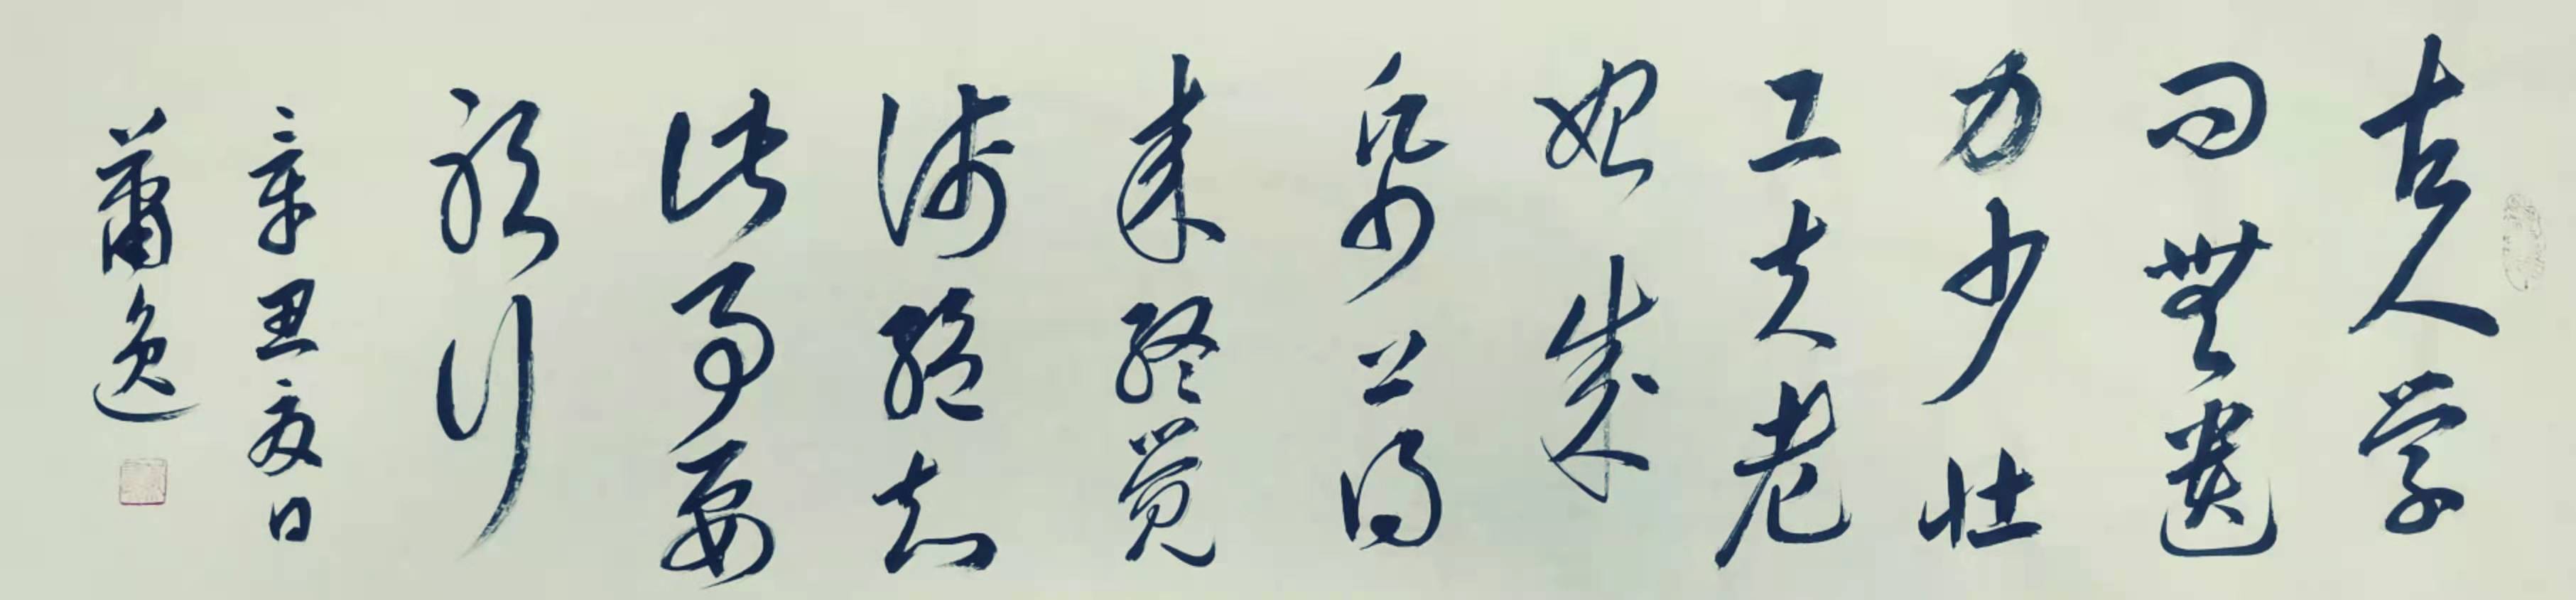 古人学
问無遗
力少壮
工夫老
始成
纸上得
来终觉
浅绝知
此事要
躬行
辛丑夏日
萧逸